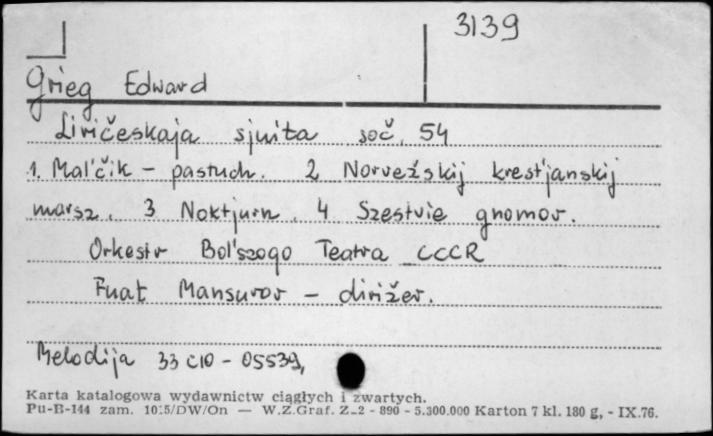 3139
Grieg Edward
Liričeskaja sjuita soč. 54
1. Mal'čik – pastuch. 2 Norvežskij krest'janskij
marsz. 3 Noktjurn. 4 Szestvie gnomov.
Orkestr Bol'szogo Teatra CCCR
Fuat Mansurov – dirižer.
Melodija 33 C10 – 05539,
Karta katalogowa wydawnictw ciągłych i zwartych.
Pu-B-144 zam. 1015/DW/On — W.Z.Graf. Z-2 - 890 - 5.300.000 Karton 7 kl. 180 g, - IX.76.